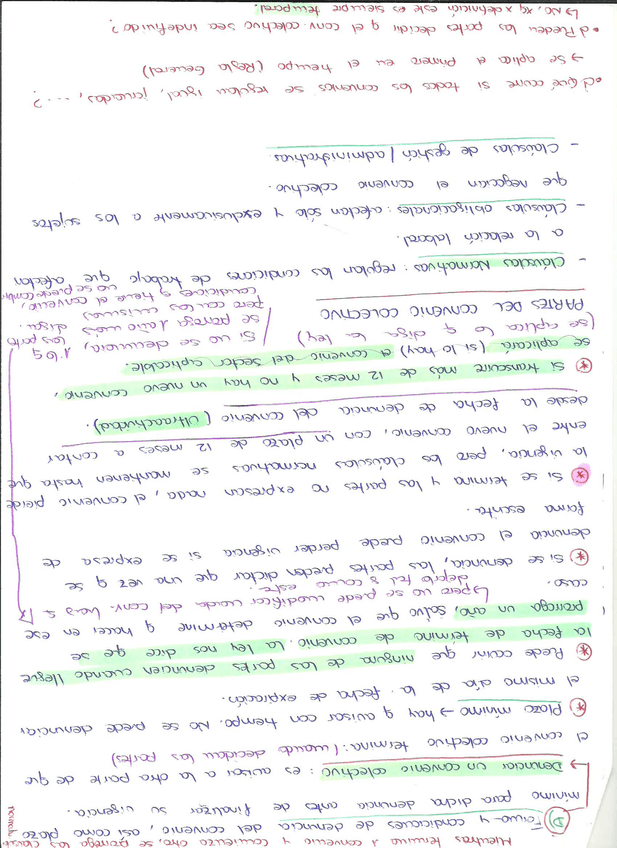 Mientras termina 1 convenio y comienza otro, se prorroga las
D) Forma y condiciones de denuncia del convenio, así como plazo
mínimo para dicha denuncia antes de finalizar su vigencia.
→ Denunciar un convenio colectivo: es avisar a la otra parte de que
el convenio colectivo termina: (cuando lo decidan las partes)
* Plazo mínimo → hay q avisar con tiempo. No se puede denunciar
el mismo día de la fecha de expiración.
* Puede ocurrir que ninguna de las partes denuncien cuando llegue
la fecha de término de convenio. La ley nos dice que se
prorroga un año, salvo que el convenio determine q hacer en ese
caso.
↳ pero no se puede modificar nada del conv.
dejarlo tal y como esté.
* Si se denuncia, las partes pueden dictar que una vez q se
denuncia el convenio puede perder vigencia si se expresa de
forma escrita.
* Si se termina y las partes no expresan nada, el convenio pierde
la vigencia, pero las cláusulas normativas se mantienen hasta que
entre el nuevo convenio, con un plazo de 12 meses a contar
desde la fecha de denuncia del convenio (Ultraactividad).
* Si transcurre más de 12 meses y no hay un nuevo convenio,
se aplicaría (si lo hay) el convenio del sector aplicable.
(se aplica lo q diga la ley)
Si no se denuncia,
se prorroga 1 año más
pero con las mismas
condiciones q tiene el convenio,
no se puede
y lo q
las parts
digan
PARTES DEL CONVENIO COLECTIVO
- Cláusulas Normativas: regulan las condiciones de trabajo que afectan
a la relación laboral.
- Cláusulas obligacionales: afectan sólo y exclusivamente a los sujetos
que negocian el convenio colectivo.
- Cláusulas de gestión / administrativas.
• ¿Qué ocurre si todos los convenios se regulan igual, jornadas, ....?
→ Se aplica el primero en el tiempo (Regla General)
• ¿Pueden las partes decidir q el conv. colectivo sea indefinido?
↳ No, xq x definición este es siempre temporal.